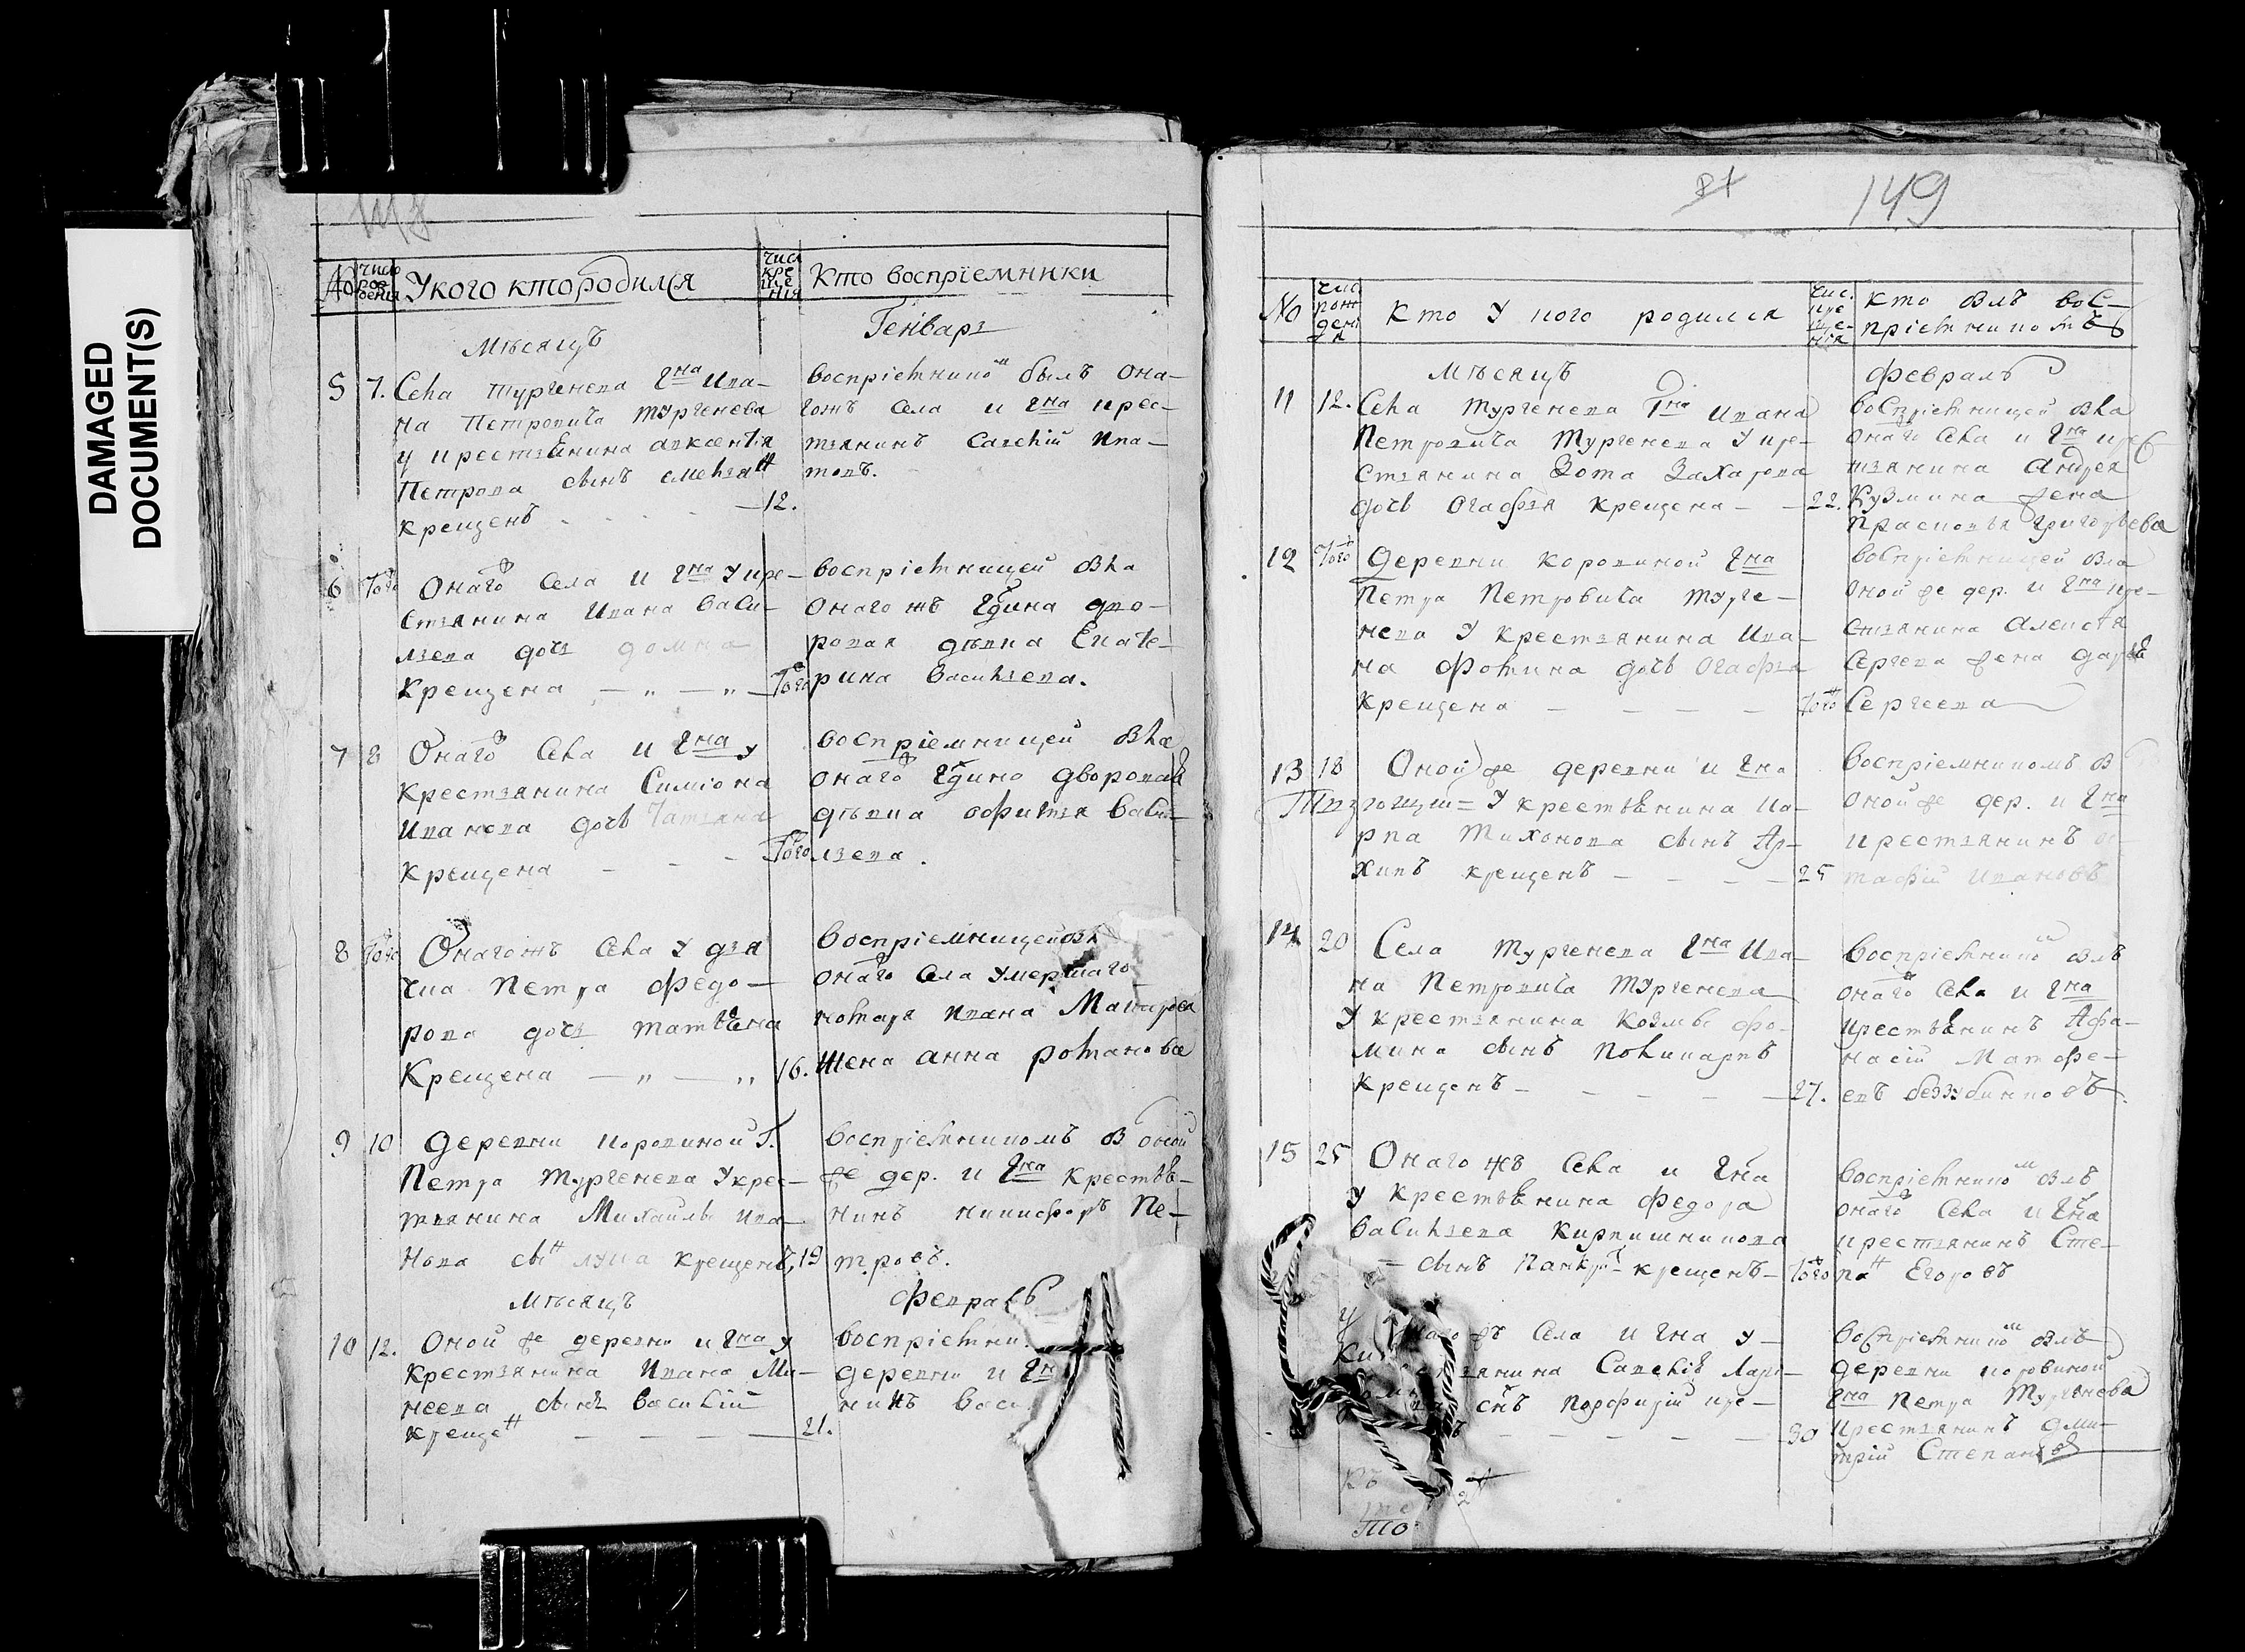 DAMAGED
DOCUMENT(S)
No
число рождения
У кого кто родился
числ крещения
Кто восприемники
Мѣсяцъ
Генварь
5 7. Села Тургенева Гна Ива-
на Петровича Тургенева
у крестьянина Авксентия
Петрова сынъ
крещенъ - - - 12.
воспріемнико<sup>м</sup> былъ она-
гожъ села и Гна крес-
тьянинъ Савелій Ипа-
товъ.
6 Того Онаго села и Гна у кре-
стьянина Ивана Васи-
льева дочь Домна
крещена — „ — „ — Того
воспріемницей бла
онагожъ Гдина дво-
ровая дѣвка Екате-
рина Васильева.
7 8 Онаго села и Гна у
крестьянина Симіона
Иванова дочь Татьяна
крещена - - - Того
воспріемницей бла
онаго Гдина дворовая
дѣвка Васи-
льева.
8 Того Онагожъ села у дья
чка Петра Федо-
рова дочь
крещена — „ — „ 16.
воспріемницей бл
онаго села умершаго
Ивана
жена Анна Романова
9 10 Деревни Коровиной Г.
Петра Тургенева у крес-
тьянина Михайлы Ива-
нова сы<sup>н</sup> Лука крещенъ, 19
воспріемникомъ б оной
же дер. и Гна крестья-
нинъ Никифоръ Пе-
тровъ.
Мѣсяцъ
Февраль
10 12. Оной же деревни и Гна у
крестьянина Ивана Ми-
неева сынъ Василій
креще<sup>н</sup> — — — 21.
воспріемни
деревни и Гн
нинъ Васи
149
No
чис рождения
Кто у кого родился
чис. крещения
Кто блъ вос-
пріемникомъ
Мѣсяцъ
Февраль
11 12. Села Тургенева Гна Ивана
Петровича Тургенева у кре-
стьянина Зота Захарова
дочь Огафья крещена — — 22.
воспріемницей бла
онаго села и Гна крес
тьянина Андрея
Кузмина жена
Прасковья Григорьева
12 Того Деревни Коровиной Гна
Петра Петровича Турге-
нева у крестьянина Ива-
на Фотина дочь Огафья
крещена — — — — Того
воспріемницей бла
оной же дер. и Гна кре-
стьянина Алексея
Сергева жена Дарья
Сергеева
13 18 Оной же деревни и Гна
у крестьянина Ка-
рпа Тихонова сынъ Ар-
хипъ крещенъ — — — 25
воспріемникомъ б
оной же дер. и Гна
крестьянинъ
Ивановъ
14 20 Села Тургенева Гна Ива-
на Петровича Тургенева
у крестьянина Козмы Фо-
мина сынъ Поликарпъ
крещенъ — — — — 27.
воспріемнико<sup>м</sup> блъ
онаго села и Гна
крестьянинъ Афа-
насій Матфе-
евъ
15 25 Онаго жъ села и Гна
у крестьянина Федора
Васильева Кирпишникова
— сынъ крещенъ — Того
воспріемнико<sup>м</sup> блъ
онаго села и Гна
крестьянинъ Сте-
па<sup>н</sup> Егоровъ
жъ села и Гна у
янина Савелія Лари-
снъ Порфирій кре-
— — — — 30
воспріемнико<sup>м</sup> блъ
деревни Коровиной
Гна Петра Тургенева
крестьянинъ Дми-
трій Степановъ